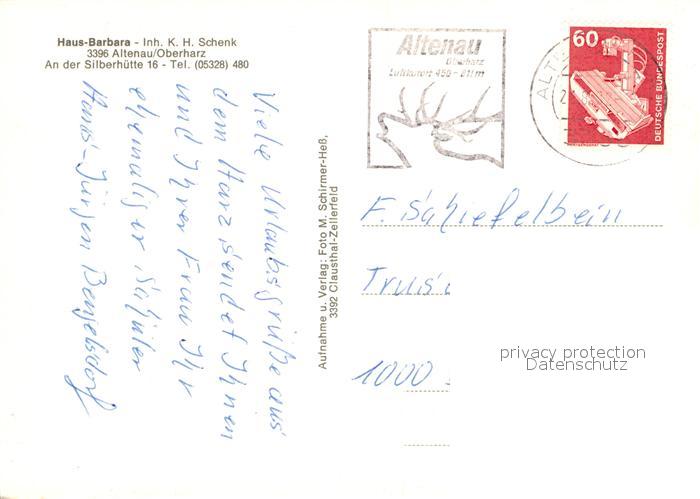 Haus-Barbara - Inh. K. H. Schenk
3396 Altenau/Oberharz
An der Silberhütte 16 - Tel. (05328) 480
Viele Urlaubsgrüße aus
dem Harz sendet Ihnen
und Ihrer Frau Ihr
ehemaliger Schüler
Hans-Jürgen Bengelsdorf
Aufnahme u. Verlag: Foto M. Schirmer-Heß,
3392 Clausthal-Zellerfeld
Altenau
Oberharz
Luftkurort 450-811m
ALTE
60
DEUTSCHE BUNDESPOST
RÖNTGENGERÄT
F. Schiefelbein
Trusi
1000
privacy protection
Datenschutz